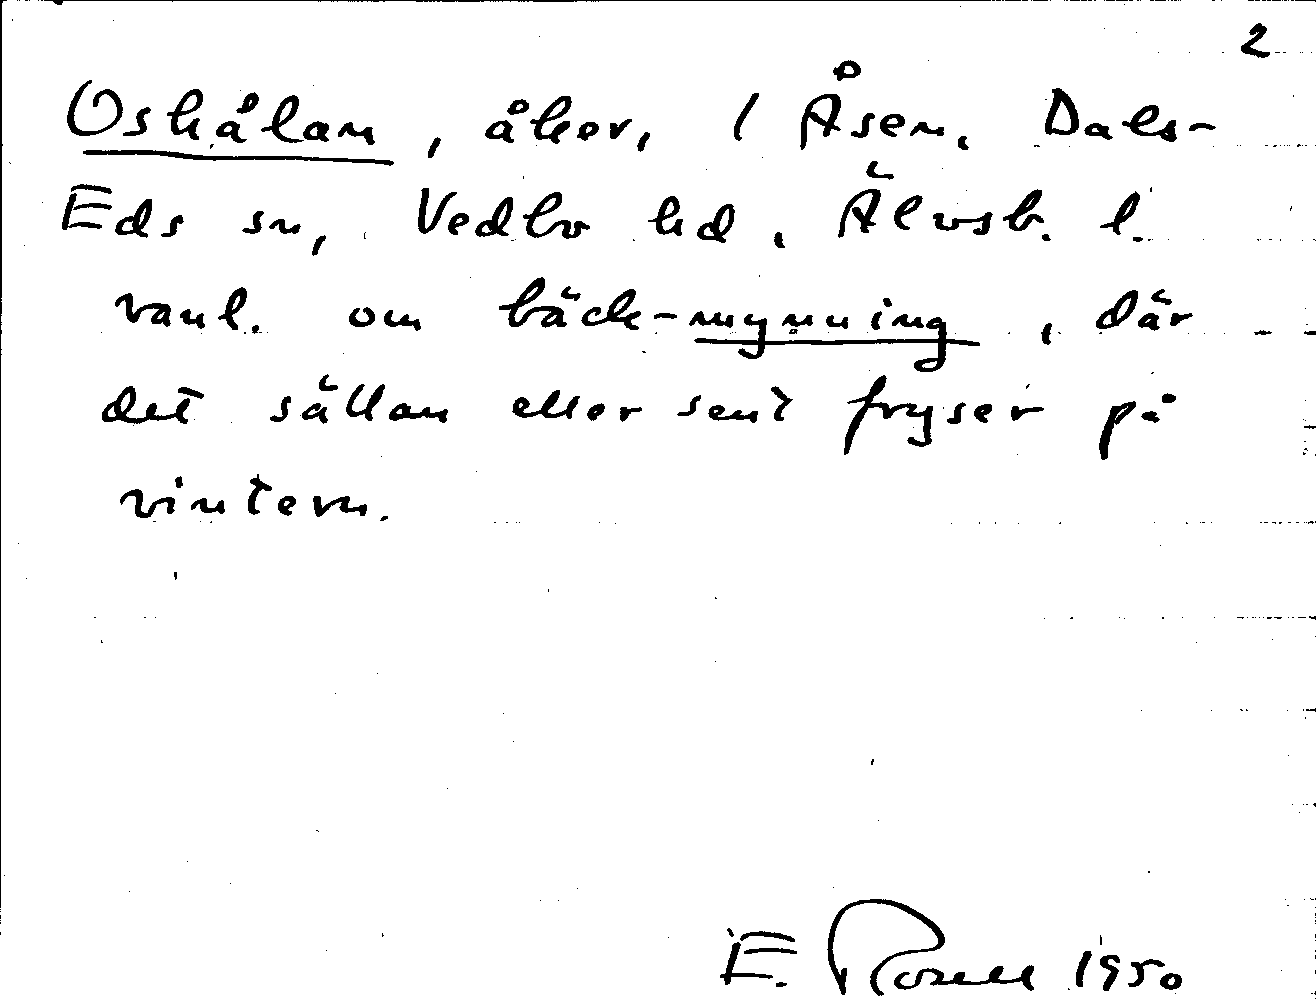 2
Oshålan, åker, 1 Åsen, Dals-
Eds sn, Vedbo hd, Älvsb. l.
vanl. om bäck-mynning, där
det sällan eller sent fryser på
vintern.
E. Rosell 1950